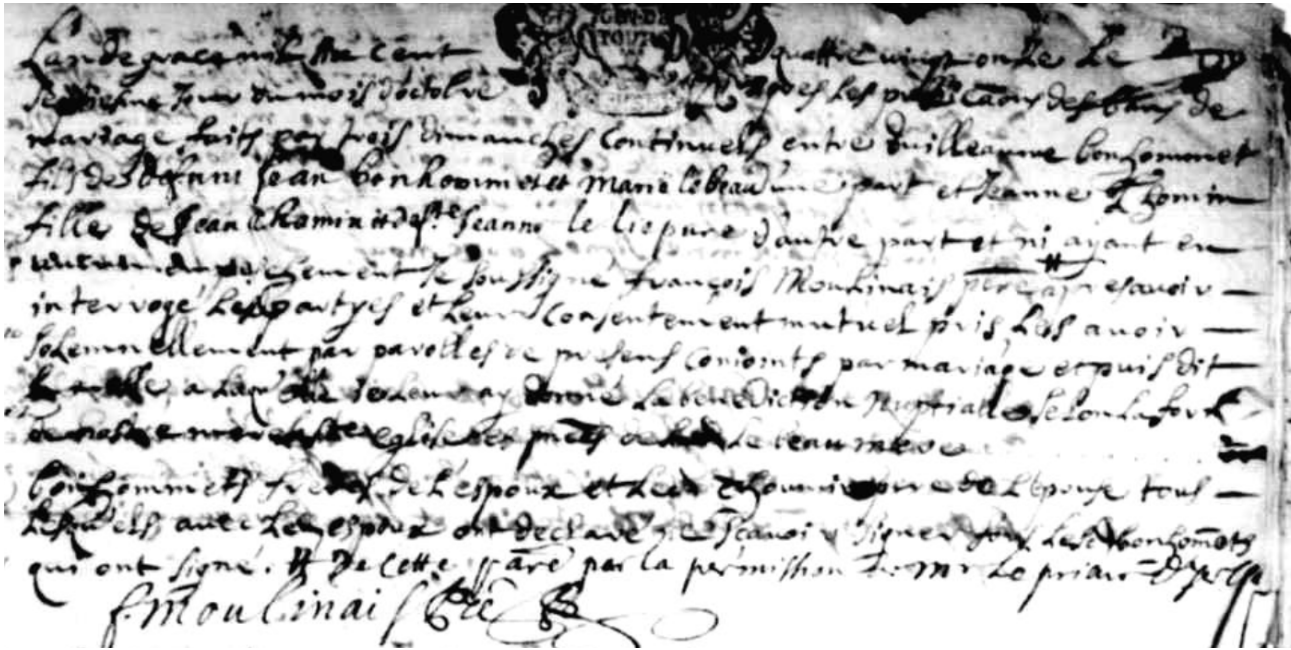 L'an de grace mil six cent quattre vingt onze le
jour du mois d'octobre apres les publicaons des bans de
mariage faits par trois dimanches continuels entre Guilleaume bonhommet
fils de deffunt Jean bonhommet et Marie lebeau d'une part et Jeanne Thomin
fille de Jean Thomin et def.te Jeanne le liepure d'autre part et ni ayant eu
Je soussigné François Moulinais pbre # apres avoir
interrogé les partyes et leur consentement mutuel pris les avoir
solemnellement par parolles de presens conioints par mariage et puis dit
la messe a laqelle je leur ay donné la benediction nuptialle selon la forme
de nostre mere ste eglise es pnts de le beau mere
bonhommets freres de l'espoux et led Thomin pere de l'epouse tous
lesquels avec les espoux ont declaré ne scavoir signer fors lesd bonhomets
qui ont signé. # de cette par la permission de Mr le prieur
f. Moulinais Pbre